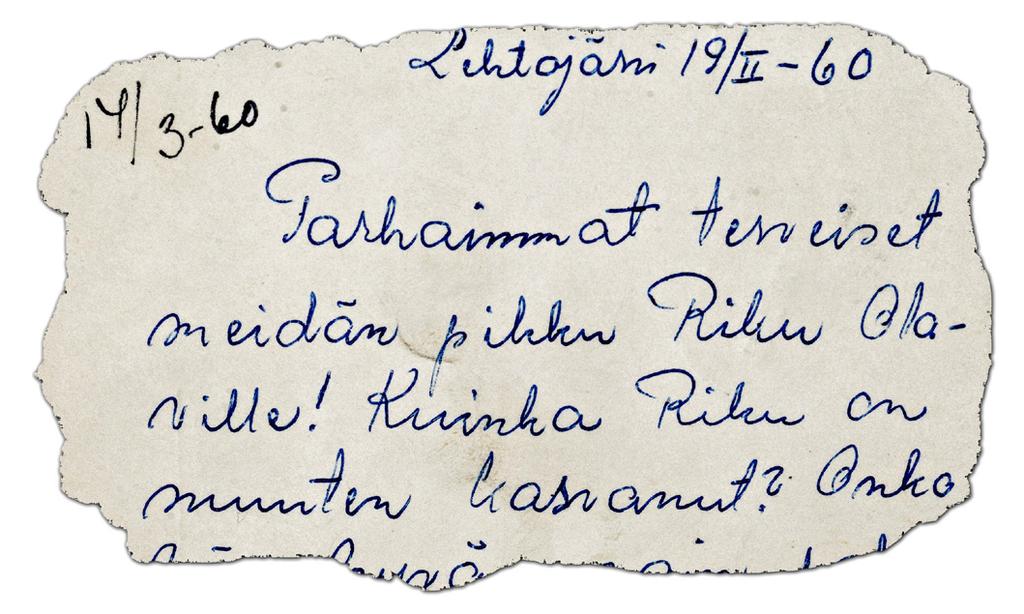 Lehtojärvi 19/II - 60
14/3-60
Parhaimmat terveiset
meidän pikku Riku Ola-
ville! Kuinka Riku on
muuten kasvanut? Onko